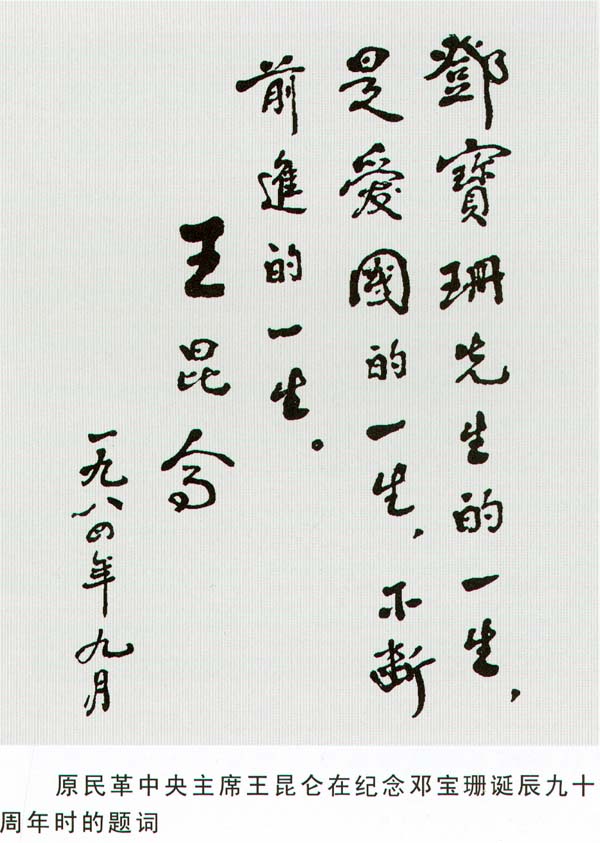 鄧寶珊先生的一生，
是愛國的一生，不断
前進的一生。
王昆侖
一九八四年九月
原民革中央主席王昆仑在纪念邓宝珊诞辰九十
周年时的题词